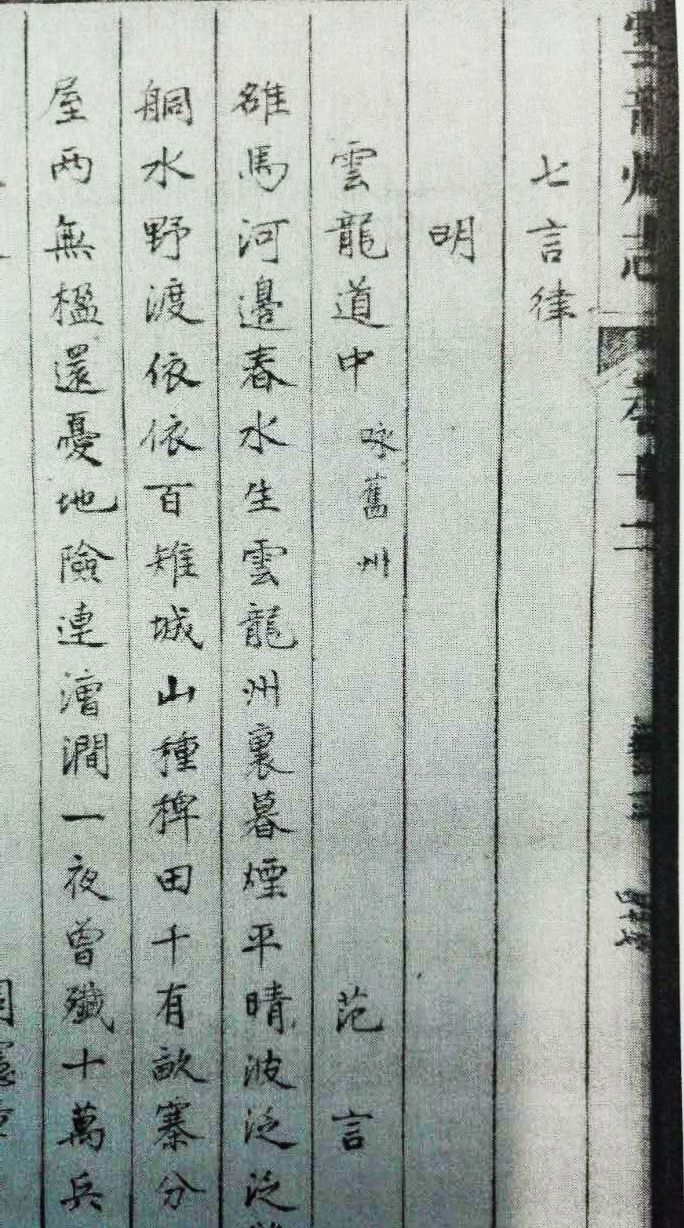 七言律
明
雲龍道中 咏舊州 范言
雒馬河邊春水生雲龍州裏暮煙平晴波泛泛
艒水野渡依依百雉城山種稗田千有畝寨分
屋兩無楹還憂地險連漕澗一夜曾殲十萬兵